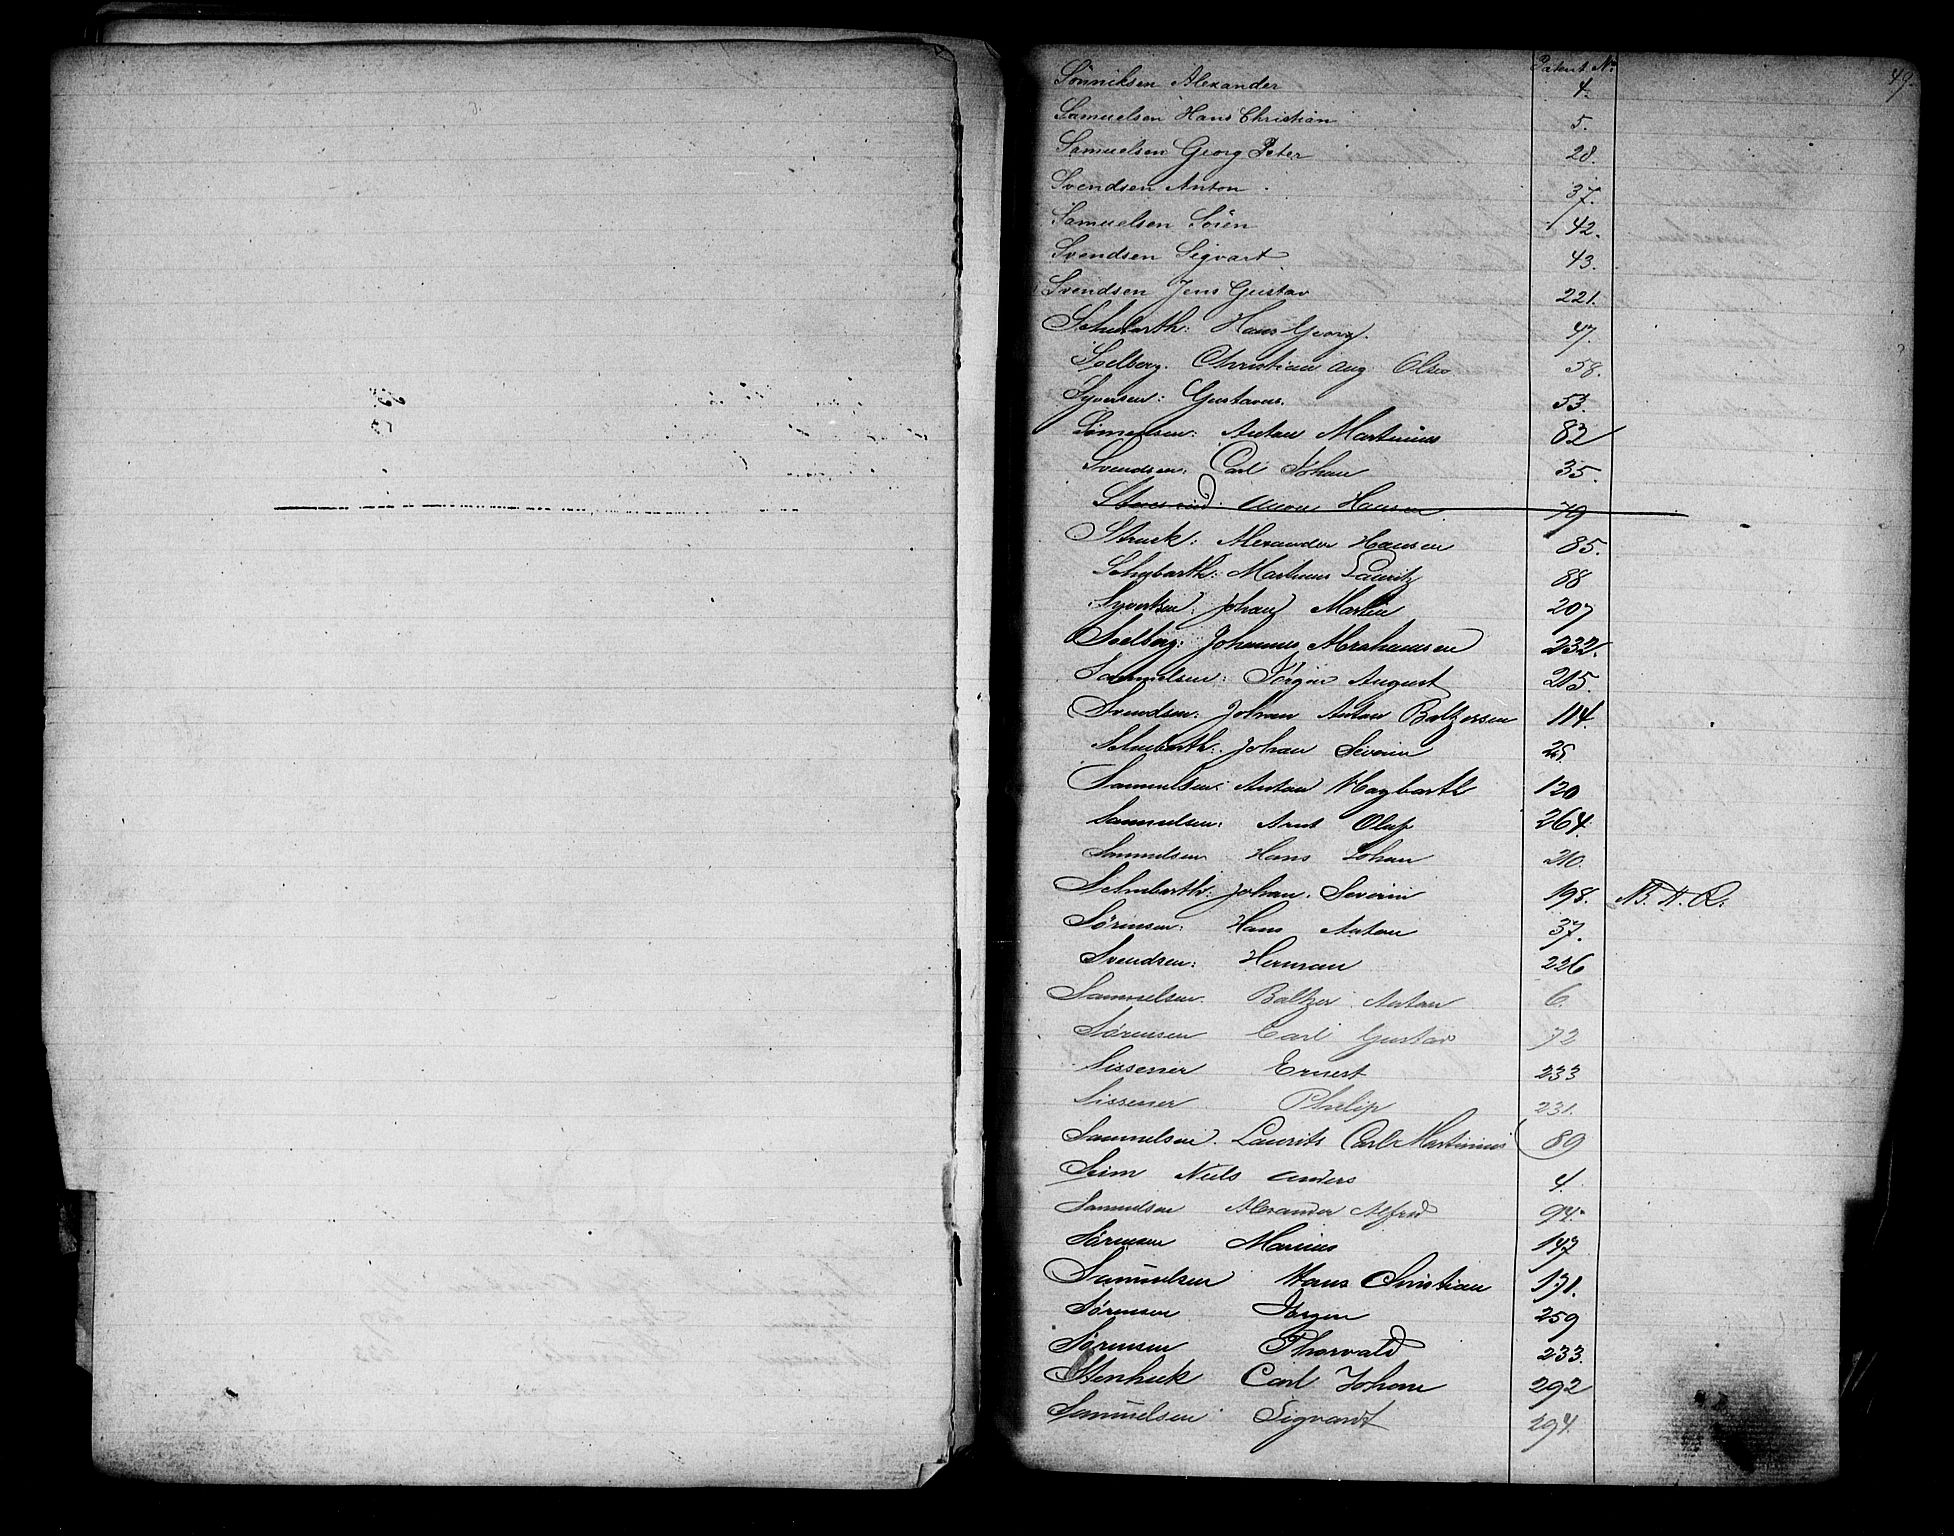 Patent No. 49.
Sönniksen Alexander 4.
Samuelsen Hans Christian 5.
Samuelsen Georg Peter 28.
Svendsen Anton. 37.
Samuelsen Sören 42.
Svendsen Sigvart 43.
Svendsen Jens Gustav 221.
Schubarth: Hans Georg. 47.
Soelberg. Christian Aug. Olsen 58.
Syversen: Gustavus. 53.
Samuelsen: Anton Martinius 82
Svendsen: Carl Johan 35.
Hansen 79
Struck: Alexander Hansen 85.
Schubarth: Martinus Lauritz 88
Syvertsen: Johan Martin 207
Soelberg: Johannes Abrahamsen 232.
Samuelsen: Jörgen August 215.
Svendsen: Johan Anton Baltzersen 114.
Schubarth: Johan Severin 25.
Samuelsen: Anton Hagbarth 120
Samuelsen: Arnt Oluf 264.
Samuelsen Hans Johan 210.
Schubarth: Johan. Severin 198. N. N. R.
Sørensen: Hans Anton 37.
Svendsen: Herman 226
Samuelsen. Baltzer Anton 6.
Sørensen Carl Gustav 72
Sissener Ernest 233
Sissener Philip 231.
Samuelsen. Laurits Carl Martinius 89
Seim Niels Anders 4.
Samuelsen Alexander Alfred 94.
Sørensen Marius 147
Samuelsen Hans Christian 171.
Sørensen Jørgen 259
Sørensen Thorvald 233.
Stenhuk Carl Johan 292
Samuelsen Sigvardt 294.